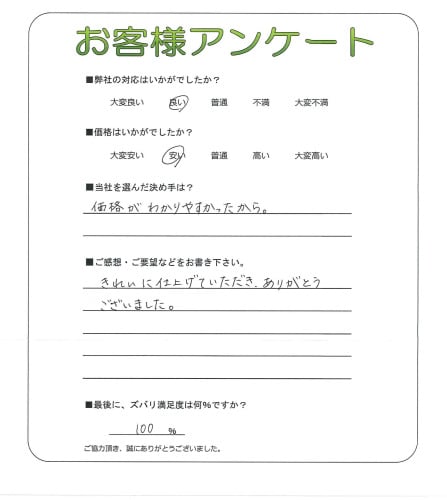 お客様アンケート
■弊社の対応はいかがでしたか?
大変良い 良い 普通 不満 大変不満
■価格はいかがでしたか?
大変安い 安い 普通 高い 大変高い
■当社を選んだ決め手は?
価格がわかりやすかったから。
■ご感想・ご要望などをお書き下さい。
きれいに仕上げていただき、ありがとう
ございました。
■最後に、ズバリ満足度は何%ですか?
100 %
ご協力頂き、誠にありがとうございました。